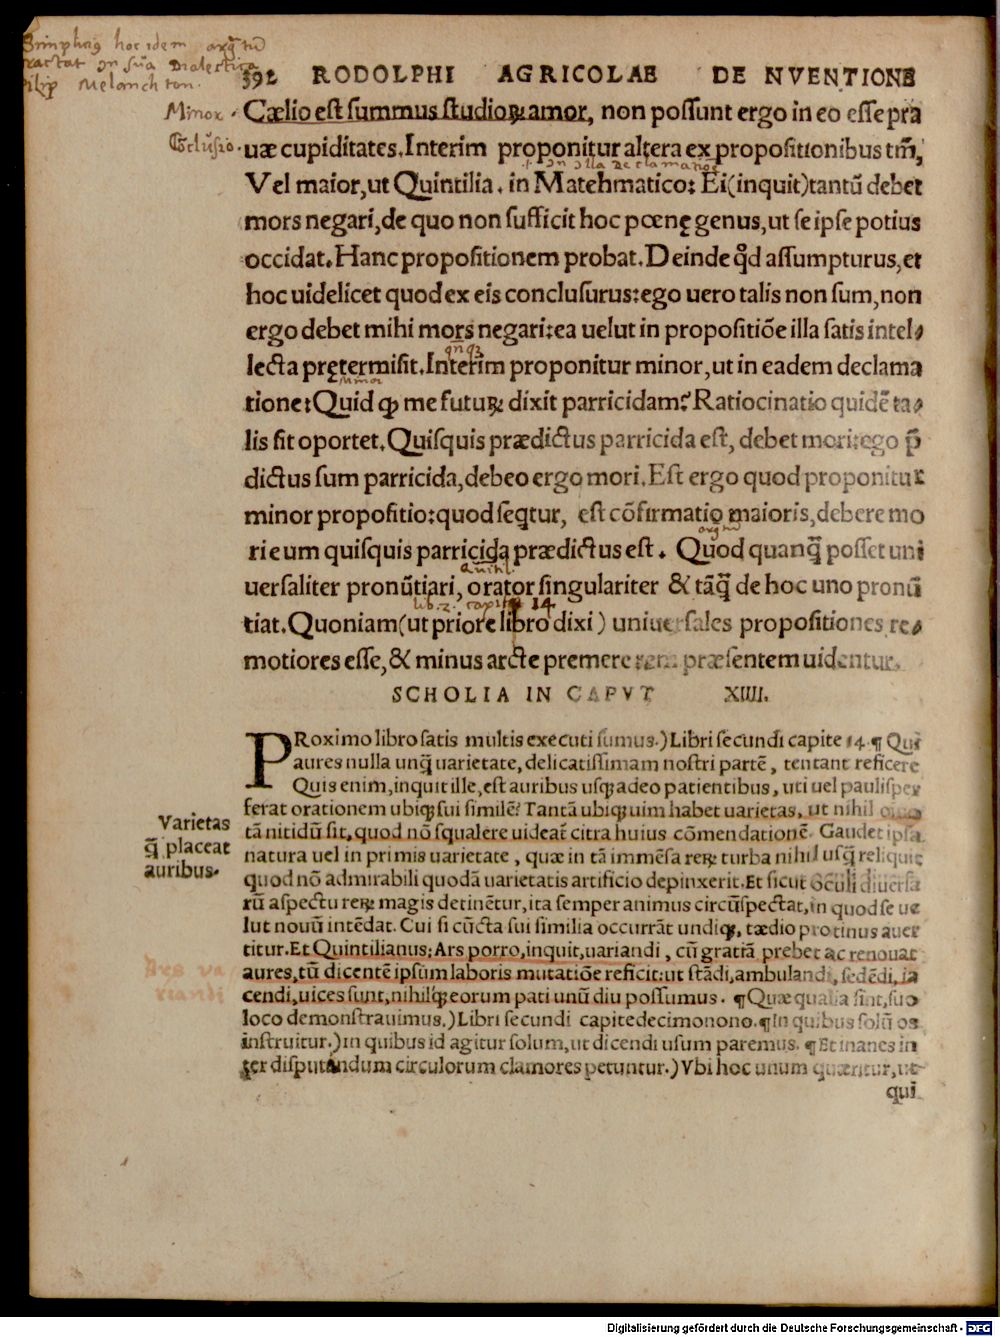 hoc idem argūtū
tractat in sua Dialectica
Melanchton.
392 RODOLPHI AGRICOLAE DE NVENTIONE
Minor. Cælio est summus studioꝝ amor, non possunt ergo in eo esse pra
Cōclusio. uæ cupiditates. Interim proponitur altera ex propositionibus tm̄,
in illa declamatione
Vel maior, ut Quintilia. in Matehmatico: Ei (inquit) tantū debet
mors negari, de quo non sufficit hoc pœnę genus, ut se ipse potius
occidat. Hanc propositionem probat. Deinde qđ assumpturus, et
hoc uidelicet quod ex eis conclusurus: ego uero talis non sum, non
ergo debet mihi mors negari: ea uelut in propositiōe illa satis intel⸗
lecta prętermisit. Interim proponitur minor, ut in eadem declama
minor
tione: Quid ꝙ me futuꝝ dixit parricidam? Ratiocinatio quidē ta⸗
lis sit oportet. Quisquis prædictus parricida est, debet mori: ego p̄
dictus sum parricida, debeo ergo mori. Est ergo quod proponitur
minor propositio: quod seqtur, est cōfirmatio maioris, debere mo
ri eum quisquis parricida prædictus est. Quod quanq̄ posset uni
uersaliter pronūtiari, orator singulariter & tāq̄ de hoc uno pronū
lib. 2. capite 14
tiat. Quoniam (ut priore libro dixi) uniuersales propositiones re⸗
motiores esse, & minus arcte premere rem præsentem uidentur.
SCHOLIA IN CAPVT XIIII.
PRoximo libro satis multis executi sumus.) Libri secundi capite 14. ¶ Qui
aures nulla unq̄ uarietate, delicatissimam nostri partē, tentant reficere
Quis enim, inquit ille, est auribus usq̨ adeo patientibus, uti uel paulisper
ferat orationem ubiq̨ sui similē? Tantā ubiq̨ uim habet uarietas, ut nihil
Varietas tā nitidū sit, quod nō squalere uideat̄ citra huius cōmendationē. Gaudet ipsa
q̄ placeat natura uel in primis uarietate, quæ in tā immēsa reꝝ turba nihil usq̄ reliquit
auribus. quod nō admirabili quodā uarietatis artificio depinxerit. Et sicut oculi diuersa
rū aspectu reꝝ magis detinētur, ita semper animus circūspectat, in quod se ue
lut nouū intēdat. Cui si cūcta sui similia occurrāt undiq̨, tædio protinus auer
titur. Et Quintilianus: Ars porro, inquit, uariandi, cū gratiā prebet ac renouat
Ars va
riandi
aures, tū dicentē ipsum laboris mutatiōe reficit: ut stādi, ambulandi, sedēdi, ia
cendi, uices sunt, nihilq̨ eorum pati unū diu possumus. ¶ Quæ qualia sint, suo
loco demonstrauimus.) Libri secundi capite decimonono. ¶ In quibus solū os
instruitur.) in quibus id agitur solum, ut dicendi usum paremus. ¶ Et inanes in
ter disputandum circulorum clamores petuntur.) Vbi hoc unum quæritur, ut
qui
Digitalisierung gefördert durch die Deutsche Forschungsgemeinschaft - DFG